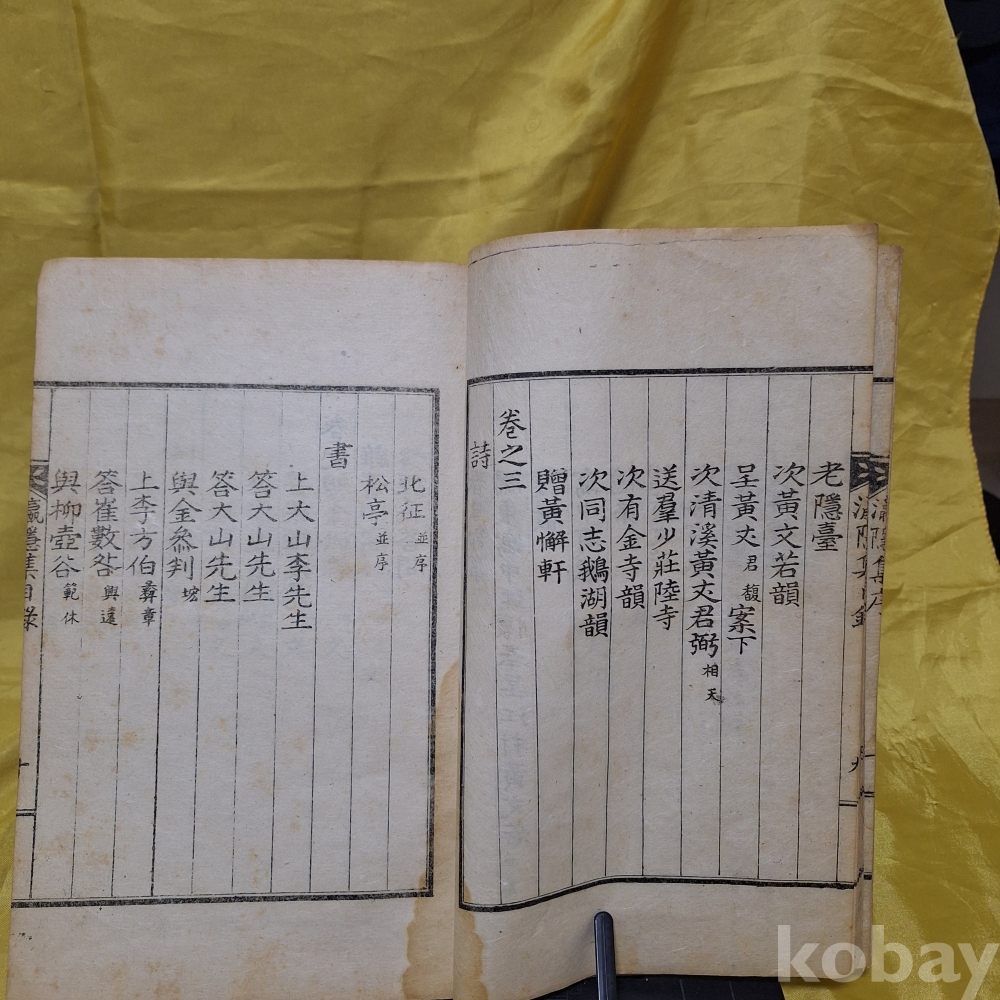 老隱臺
次黃文若韻
呈黃丈君馥案下
次清溪黃丈君弼相天
送羣少莊陸寺
次有金寺韻
次同志鵝湖韻
贈黃懈軒
卷之三
詩
北征並序
松亭並序
書
上大山李先生
答大山先生
答大山先生
與金參判㙆
上李方伯彝章
答崔數咎興遠
與柳壺谷範休
瀛隱集目錄
瀛隱集序
kobay